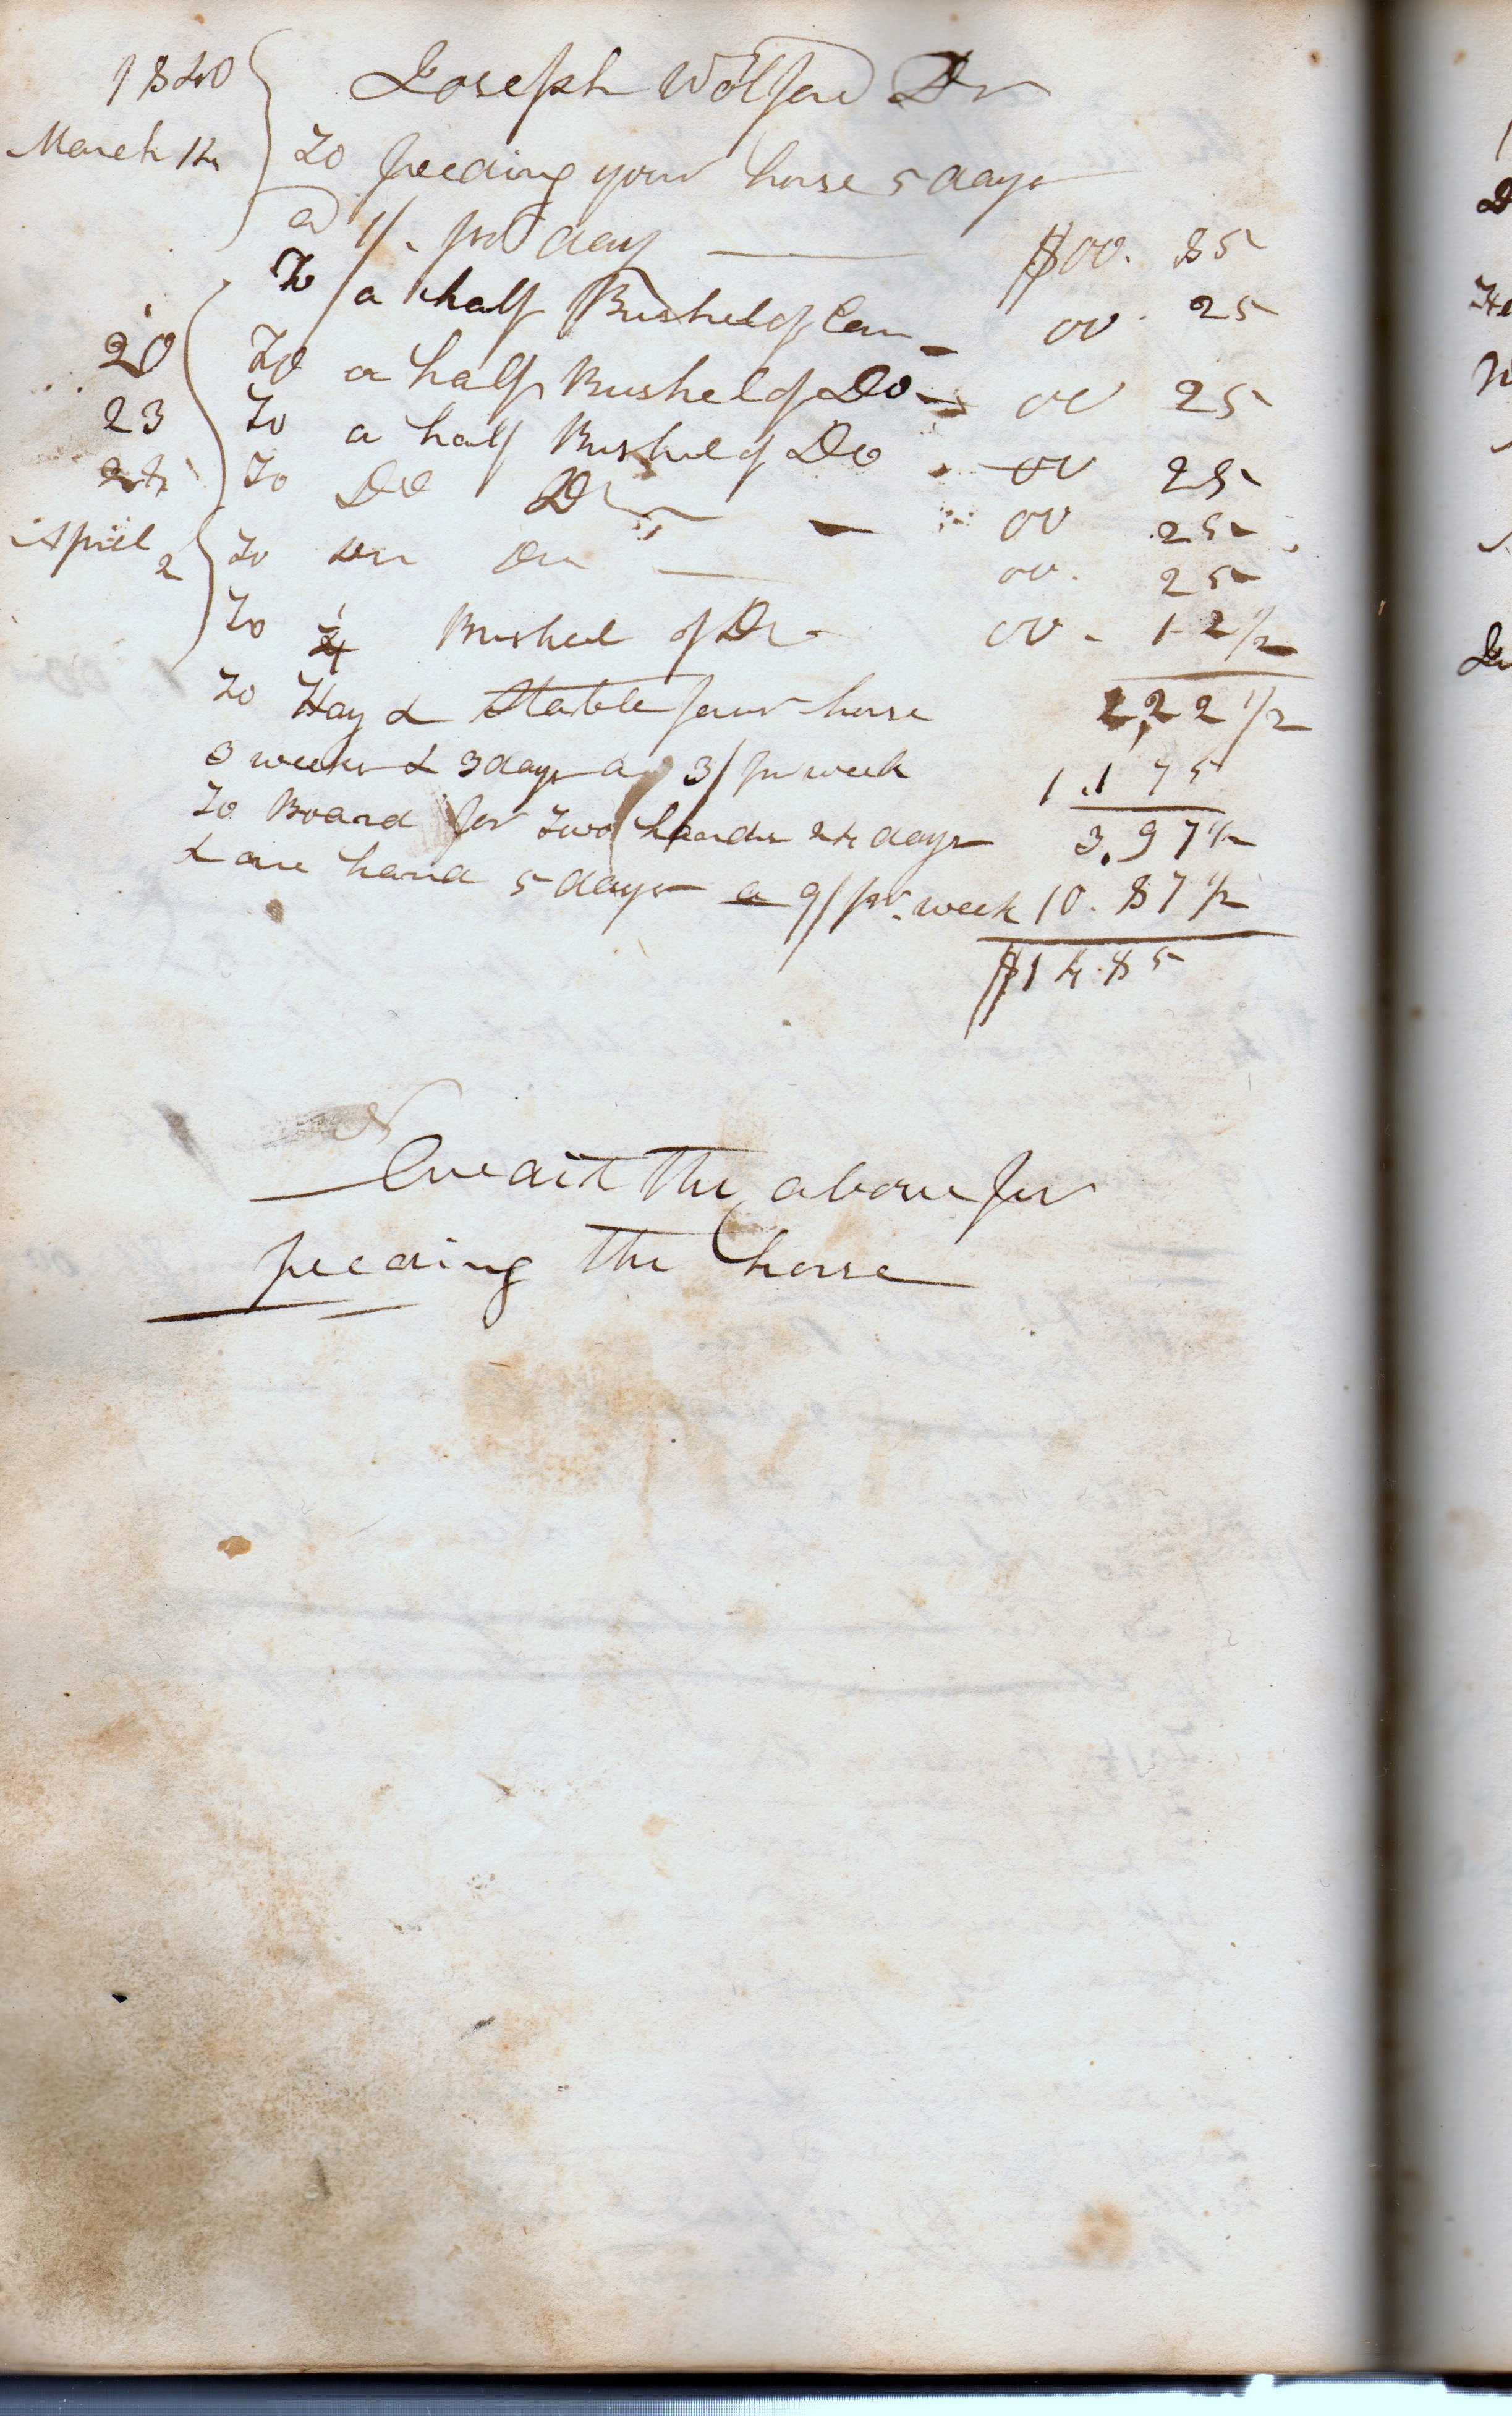 1840 Joseph Wolford Dr
March 14 To feeding your horse 5 days
a 1/- pr day $00. 85
To a half Bushel of Corn 00. 25
20 To a half Bushel of Do 00 25
23 To a half Bushel of Do 00 25
24 To Do Do 00 25
April 2 To Do Do 00. 25
To 1/4 Bushel of Do 00 - 12 1/2
To Hay & Stable for horse 2,22 1/2
3 weeks & 3 days a 3/ pr week 1.75
To Board for two hands 24 days 3.97 1/2
& one hand 5 days a 9/ pr. week 10.87 1/2
$14.85
Credit the above for
feeding the horse